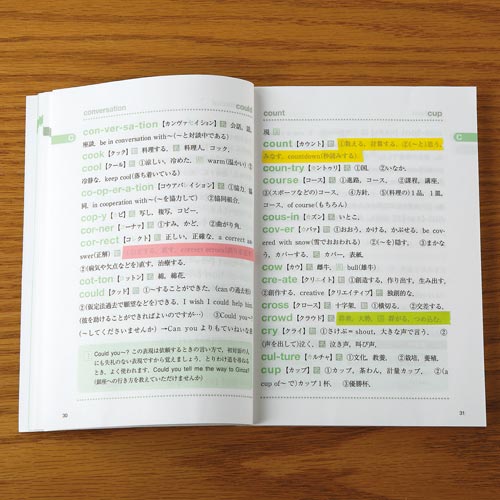 conversation
could
con·ver·sa·tion 【カンヴァセイション】 会話, 
座談. be in conversation with～(～と対談中である)
cook 【クック】 料理する. 料理人, コック.
cool 【クール】 ①涼しい, 冷めた. warm(温かい) ②
冷静な. keep cool(落ち着いている)
co-op·er·a·tion 【コウアパレイション】 ①協力, 協
同. in cooperation with～(～を協力して) ②協同組合.
cop·y 【カピ】 写し, 複写, コピー.
cor·ner 【コーナァ】 ①すみ, かど. ②曲がり角.
cor·rect 【コレクト】 正しい, 正確な. a correct an-
swer(正解)
②(病気や欠点などを)直す, 治療する.
cot·ton 【コトン】 綿, 綿花.
could 【クッド】 ①～することができた. (canの過去形)
②(仮定法過去で願望などを)できる. I wish I could help him.
(彼を助けることができればよいのですが…) ③(Could you
～?で)(～してくださいませんか) →Can you よりもていねいな言
Could you～? この表現は依頼するときの言い方で, 初対面の人
にも失礼のない表現ですから覚えましょう. とりわけ道を尋ねる
とき, よく使われます. Could you tell me the way to Ginza?
(銀座への行き方を教えていただけませんか)
30
count
cup
C
現
count 【カウント】 ①数える, 計算する. ②(～と)思う,
みなす. countdown(秒読みする)
coun·try 【カントゥリ】 ①国. ②いなか.
course 【コース】 ①進路, コース. ②課程, 講座.
③(スポーツなどの)コース. ④方針. ⑤(料理の)1品, 1皿,
コース. of course(もちろん)
cous·in 【カズン】 いとこ.
cov·er 【カバァ】 ①おおう, かける, かぶせる. be cov-
ered with snow(雪でおおわれる) ②(～を)隠す. ③まかな
う, カバーする. カバー, 表紙.
cow 【カウ】 雌牛. bull(雄牛)
cre·ate 【クリエイト】 ①創造する, 作り出す, 生み出す.
②創作する. creative【クリエイティブ】 独創的な.
cross 【クロース】 十字架. ①横切る. ②交差する.
crowd 【クラウド】 群衆, 大勢. 群がる, つめ込む.
cry 【クライ】 ①さけぶ＝shout, 大きな声で言う. ②
(声を出して)泣く. 泣き声, 叫び声.
cul·ture 【カルチャ】 ①文化, 教養. ②栽培, 養殖.
cup 【カップ】 ①カップ, 茶わん, 計量カップ. ②(a
cup of～ で)カップ1杯. ③優勝杯.
31